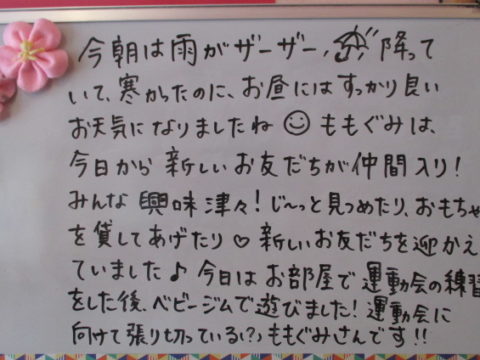 今朝は雨がザーザー、☂降って
いて、寒かったのに、お昼にはすっかり良い
お天気になりましたね☺ももぐみは、
今日から新しいお友だちが仲間入り!
みんな興味津々!じ〜っと見つめたり、おもちゃ
を貸してあげたり♡新しいお友だちを迎かえ
ていました♪今日はお部屋で運動会の練習
をした後、ベビージムで遊びました!運動会に
向けて張り切っている(?)ももぐみさんです!!